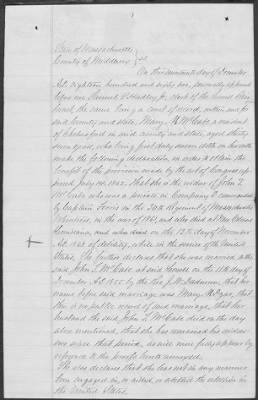 State of Massachusetts
County of Middlesex } ss
On this day of December
A.D. eighteen hundred and sixty two, personally appeared
before me Samuel P. Hadley Jr, clerk of the
Court, the same being a court of record, within and for
said County and State, Mary H. McCabe a resident
of Chelmsford in said county and state, aged thirty
years, who, being first duly sworn doth on her oath
make the following declaration, in order to obtain the
benefit of the provision made by the act of Congress ap-
proved July 14, 1862. That she is the widow of John T.
McCabe who was a private in Company commanded
by Captain in the Regiment of Massachusetts
Volunteers, in the war of 1861, and who died at New Orleans
Louisiana, and who died on the 12th day of November
A.D. 1862 of debility, while in the service of the United
States. She further declares that she was married to the
said John T. McCabe at said Lowell on the 11th day of
December A.D. 1855 by the Rev. J. W. that her
name before said marriage was Mary H. that
there is no public record of said marriage, that her
husband the said John T. McCabe died on the day
above mentioned, that she has remained his widow
ever since that period, as will more fully appear by
reference to the proofs hereto annexed.
She also declares that she has not in any manner
been engaged in, or aided, or abetted the rebellion in
the United States.